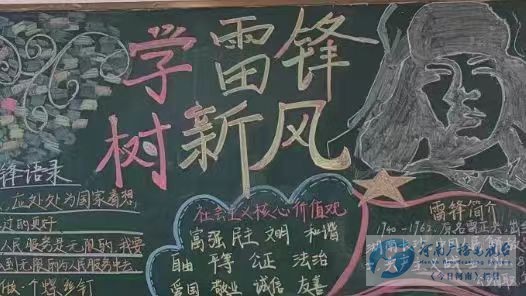 学雷锋
树新风
锋语录
应处处为国家着想
过的更好
人民服务是无限的,我要
到无限的为人民服务中去
做一个螺丝钉
社会主义核心价值观
富强 民主 文明 和谐
自由 平等 公正 法治
爱国 敬业 诚信 友善
雷锋简介
1940-1962,原名雷正兴,出生
河南广播电视台